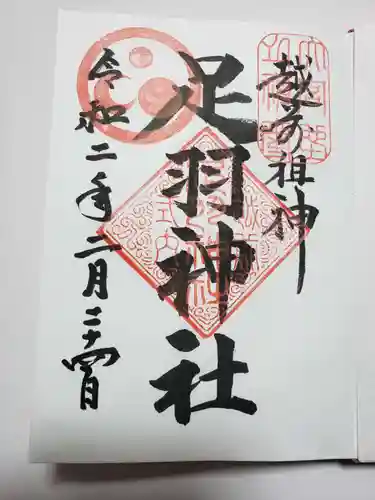 越前祖神
足羽神社
令和二年二月二十四日